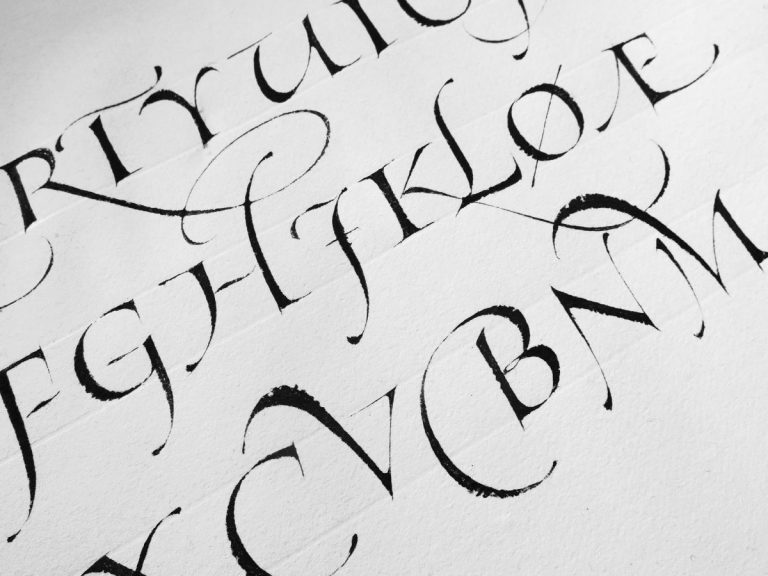 RTYUI
FGHJKLØÆ
XCVBNM